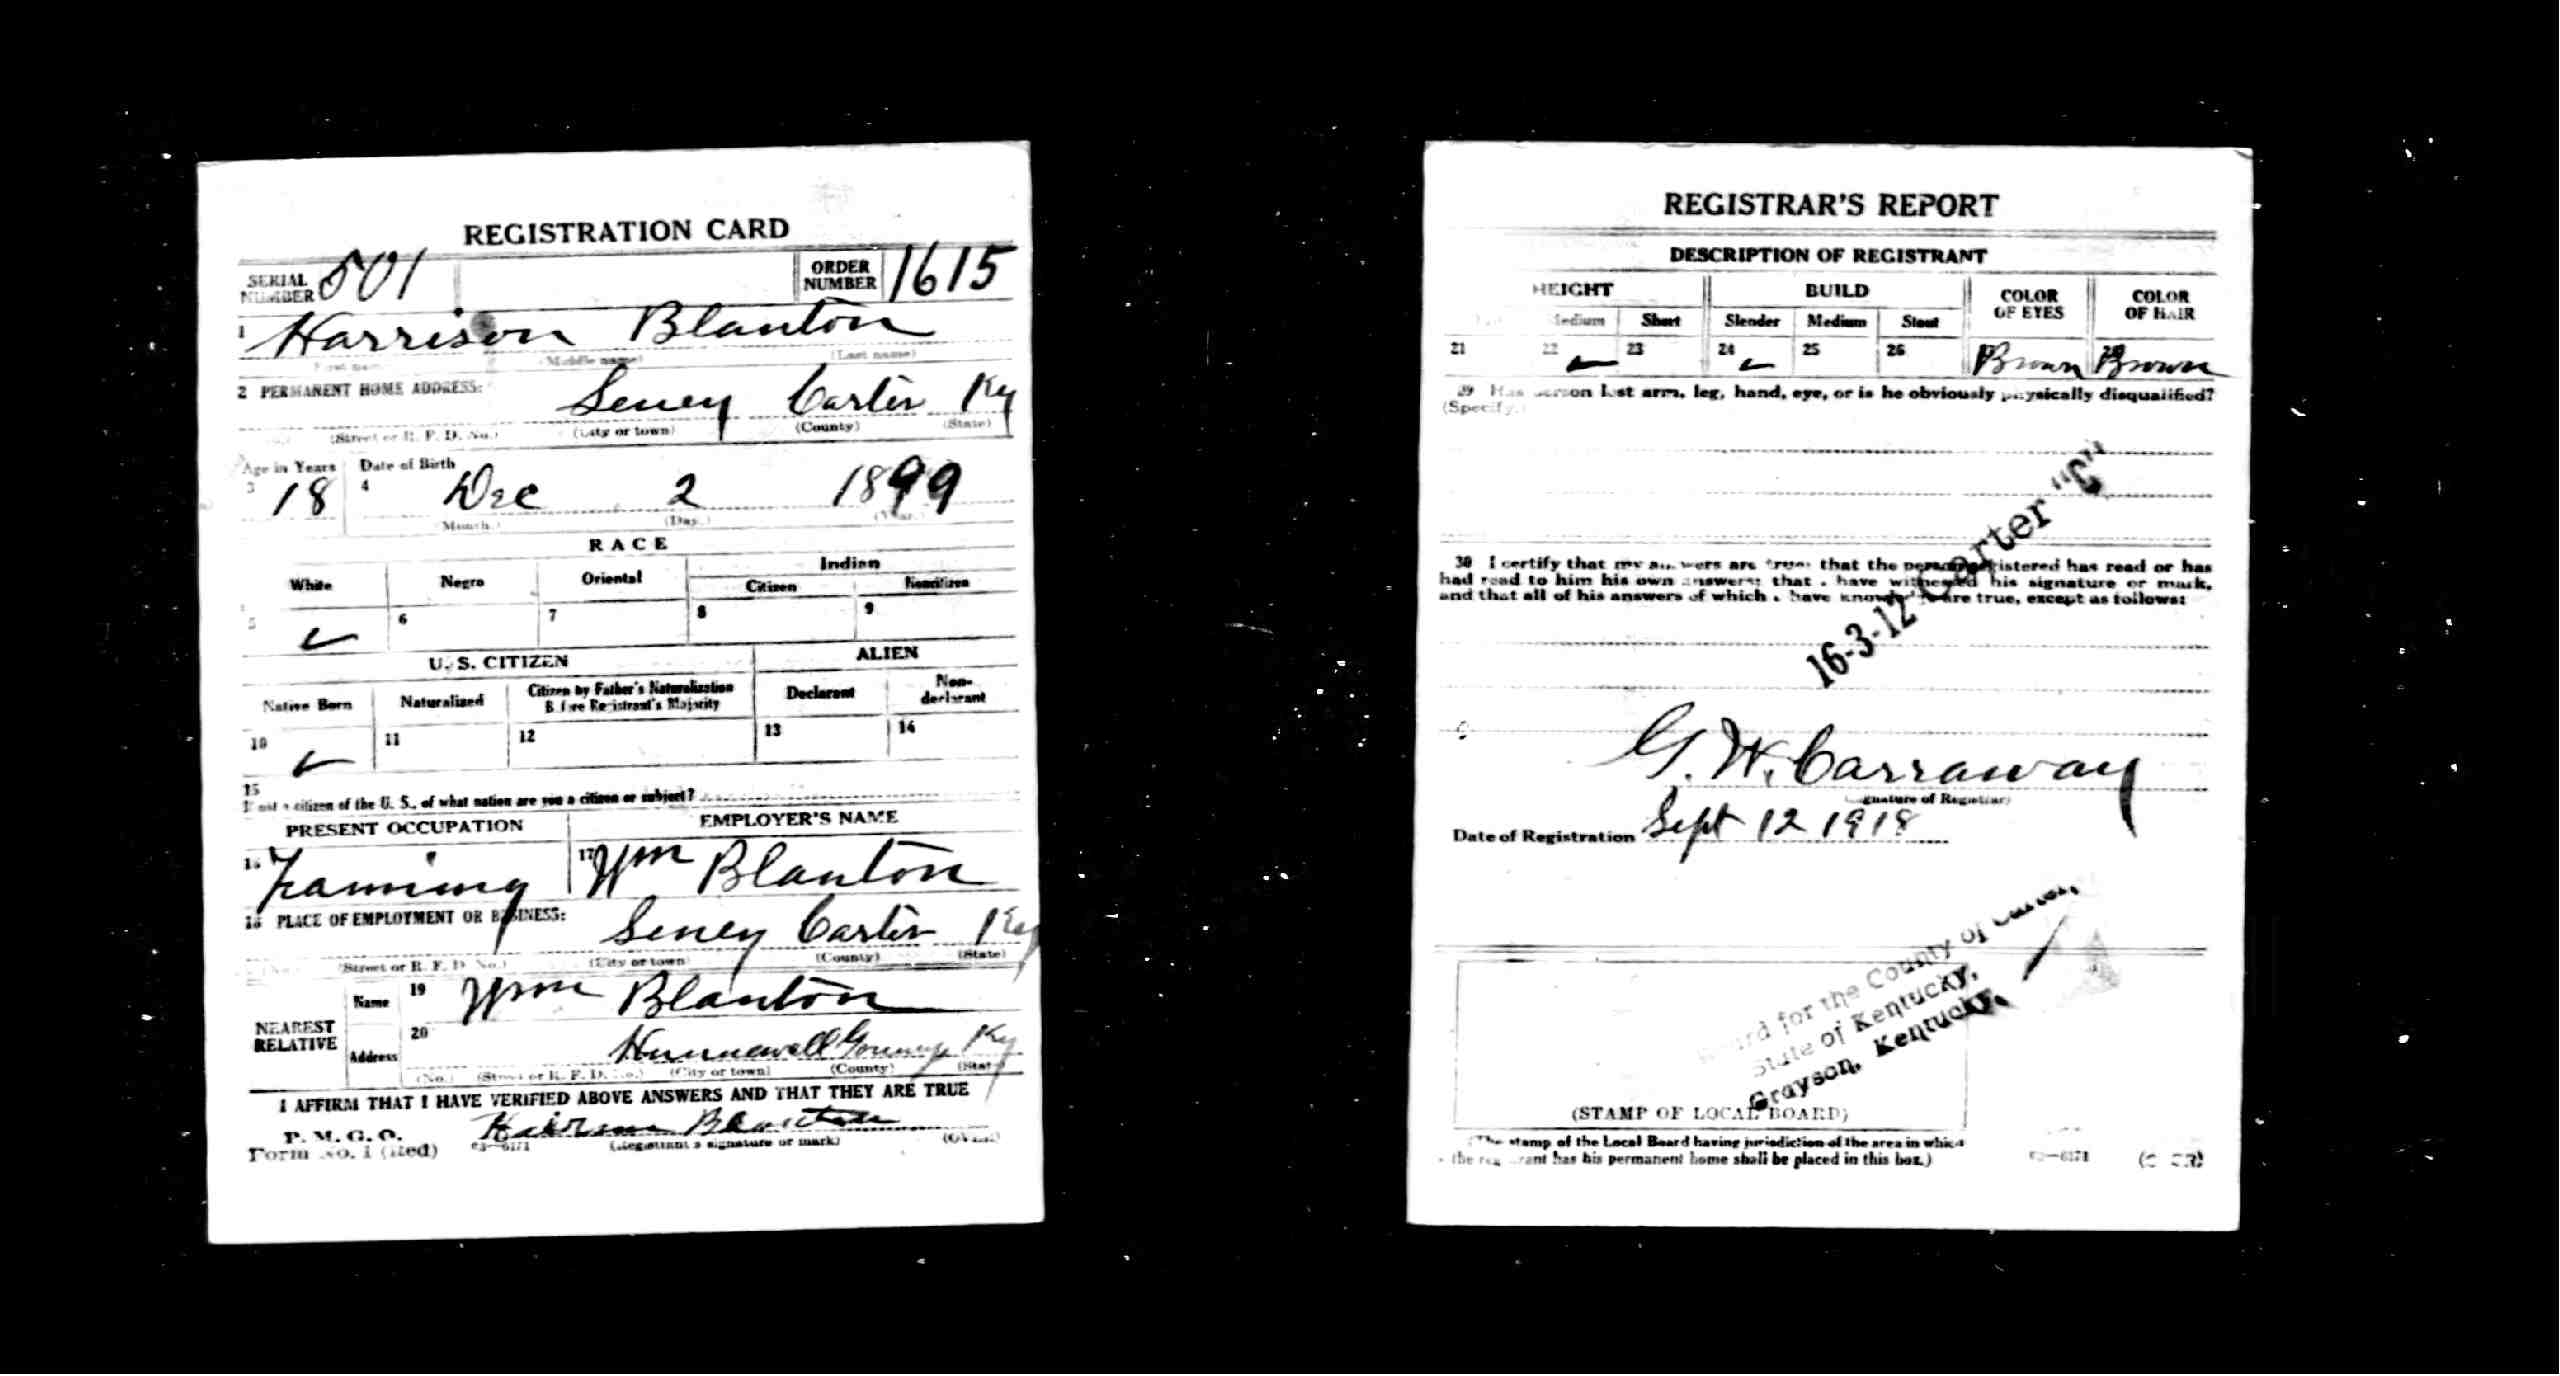 REGISTRATION CARD
SERIAL NUMBER 501 ORDER NUMBER 1615
1 Harrison Blanton
(Middle name) (Last name)
2 PERMANENT HOME ADDRESS:
Seney Carter Ky
(Street or R. F. D. No.) (City or town) (County) (State)
Age in Years Date of Birth
3 18 4 Dec 2 1899
(Month.) (Day.) (Year.)
RACE
White Negro Oriental Indian
Citizen Noncitizen
5 6 7 8 9
U. S. CITIZEN ALIEN
Native Born Naturalized Citizen by Father's Naturalization Before Registrant's Majority Declarant Non-declarant
10 11 12 13 14
15
If not a citizen of the U. S., of what nation are you a citizen or subject?
PRESENT OCCUPATION EMPLOYER'S NAME
16 Farming 17 Wm Blanton
18 PLACE OF EMPLOYMENT OR BUSINESS:
Seney Carter Ky
(Street or R. F. D. No.) (City or town) (County) (State)
NEAREST RELATIVE
Name 19 Wm Blanton
Address 20 Hunnewell Ky
(No.) (Street or R. F. D. No.) (City or town) (County) (State)
I AFFIRM THAT I HAVE VERIFIED ABOVE ANSWERS AND THAT THEY ARE TRUE
P. M. G. O.
Form No. 1 (Red) 03—6171 Harrison Blanton
(Registrant's signature or mark) (OVER)
REGISTRAR'S REPORT
DESCRIPTION OF REGISTRANT
HEIGHT BUILD COLOR OF EYES COLOR OF HAIR
Medium Short Slender Medium Stout
21 22 23 24 25 26 Brown Brown
29 Has person lost arm, leg, hand, eye, or is he obviously physically disqualified?
(Specify.)
30 I certify that my answers are true; that the person registered has read or has
had read to him his own answers; that I have witnessed his signature or mark,
and that all of his answers of which I have knowledge are true, except as follows:
16-3-12 Carter "C"
G. W. Carraway
(Signature of Registrar)
Date of Registration Sept 12 1918
Board for the County of Carter,
State of Kentucky,
Grayson, Kentucky
(STAMP OF LOCAL BOARD)
(The stamp of the Local Board having jurisdiction of the area in which
the registrant has his permanent home shall be placed in this box.)
03—6171 (OVER)